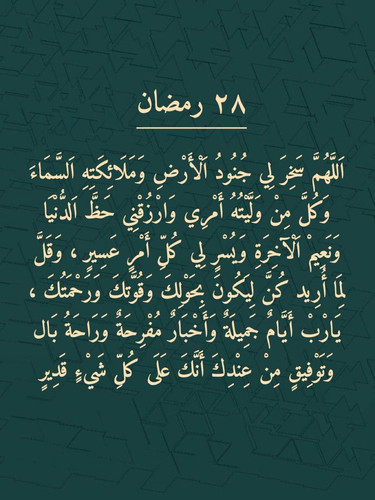 ٢٨ رمضان
اَللَّهُمَّ سَخِرَ لِي جُنُودُ اَلْأَرْضِ وَمَلَائِكَتِهِ اَلسَّمَاءَ
وَكُلَّ مِنْ وَلَّيْتُهُ أَمْرِي وَارْزُقْنِي حَظَّ اَلدُّنْيَا
وَنَعِيمْ اَلْآخِرَةِ وَيُسْرٍ لِي كُلِّ أَمْرٍ عَسِيرٍ ، وَقَلَّ
لِمَا أُرِيد كُنَّ لِيَكُونَ بِحَوْلِكَ وَقُوَّتِكَ وَرَحْمَتُكَ ،
يَارْبْ أَيَّامٌ جَمِيلَةٌ وَأَخْبَارٌ مُفْرِحَةٌ وَرَاحَةُ بَال
وَتَوْفِيقٍ مِنْ عِنْدِكَ أَنَّكَ عَلَى كُلِّ شَيْءٍ قَدِيرٍ